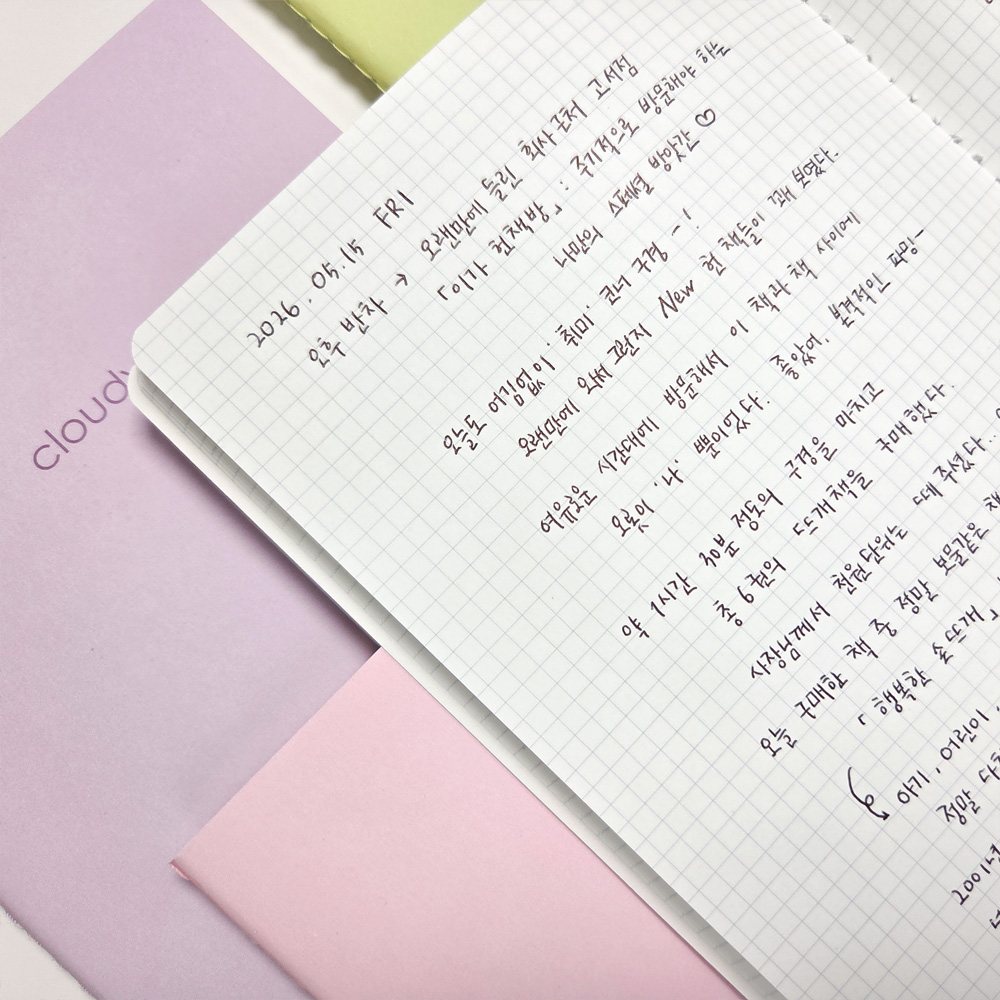 cloudy
2026. 05. 15 FRI
오후 반차 → 오랜만에 들린 회사 근처 고서점
「이가 헌책방」: 주기적으로 방문해야 하는
나만의 스페셜 방앗간 ♡
오늘도 어김없이 '취미' 코너 구경 -!
오랜만에 와서 그런지 New 헌 책들이 꽤 보였다.
여유로운 시간대에 방문해서 이 책과 책 사이에
오롯이 '나' 뿐이었다: 좋았어. 본격적인 파밍-
약 1시간 30분 정도의 구경을 마치고
총 6권의 뜨개책을 구매했다.
사장님께서 천원단위는 떼주셨다..
오늘 구매한 책 중 정말 보물같은
「행복한 손뜨개」
아기, 어린이
정말
2001년